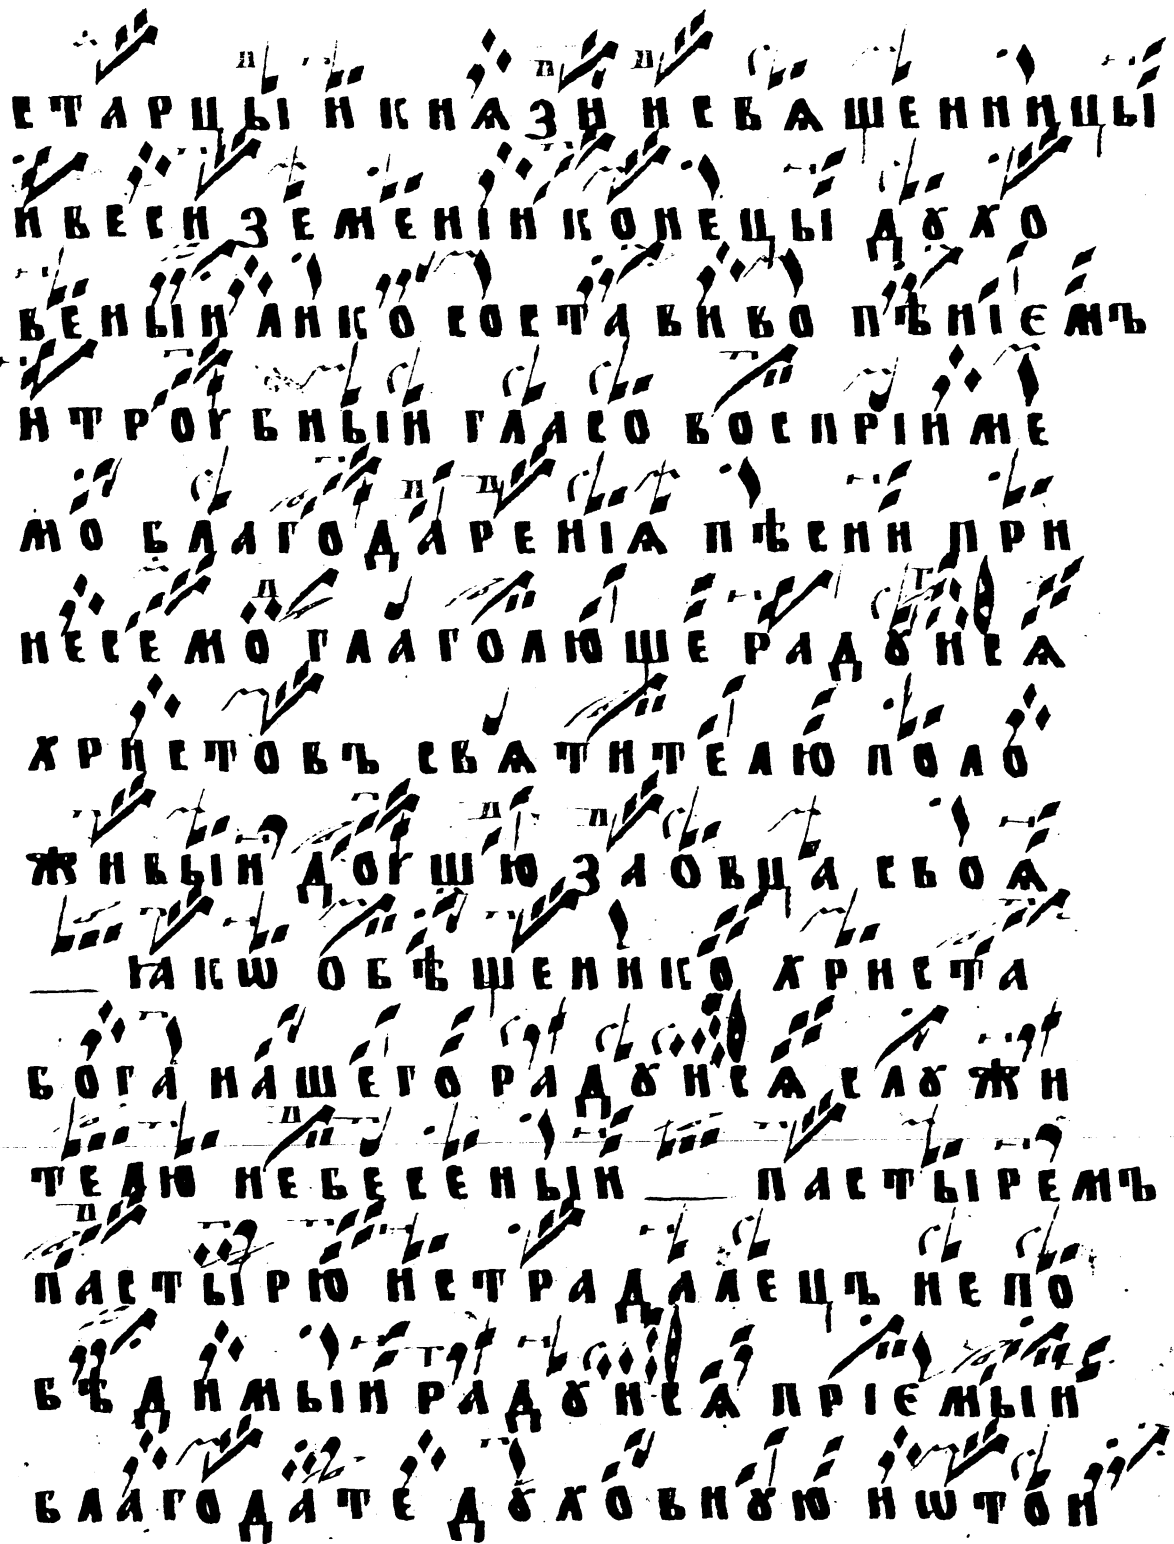 старцы и кнѧзи и свѧщенницы
и веси земенїи конецы дꙋхо
веныи лико составиво пѣнїємъ
и троубныи гласо воспрїиме
мо благодаренїѧ пѣсни при
несемо глаголюще радꙋисѧ
христовъ свѧтителю поло
живыи доушю за овца своѧ
ꙗкѡ обѣщенико христа
бога нашего радꙋисѧ слꙋжи
телю небесеныи пастыремъ
пастырю и страдалецъ непо
бѣдимыи радꙋисѧ прїємыи
благодате дꙋховнꙋю и ѡтои